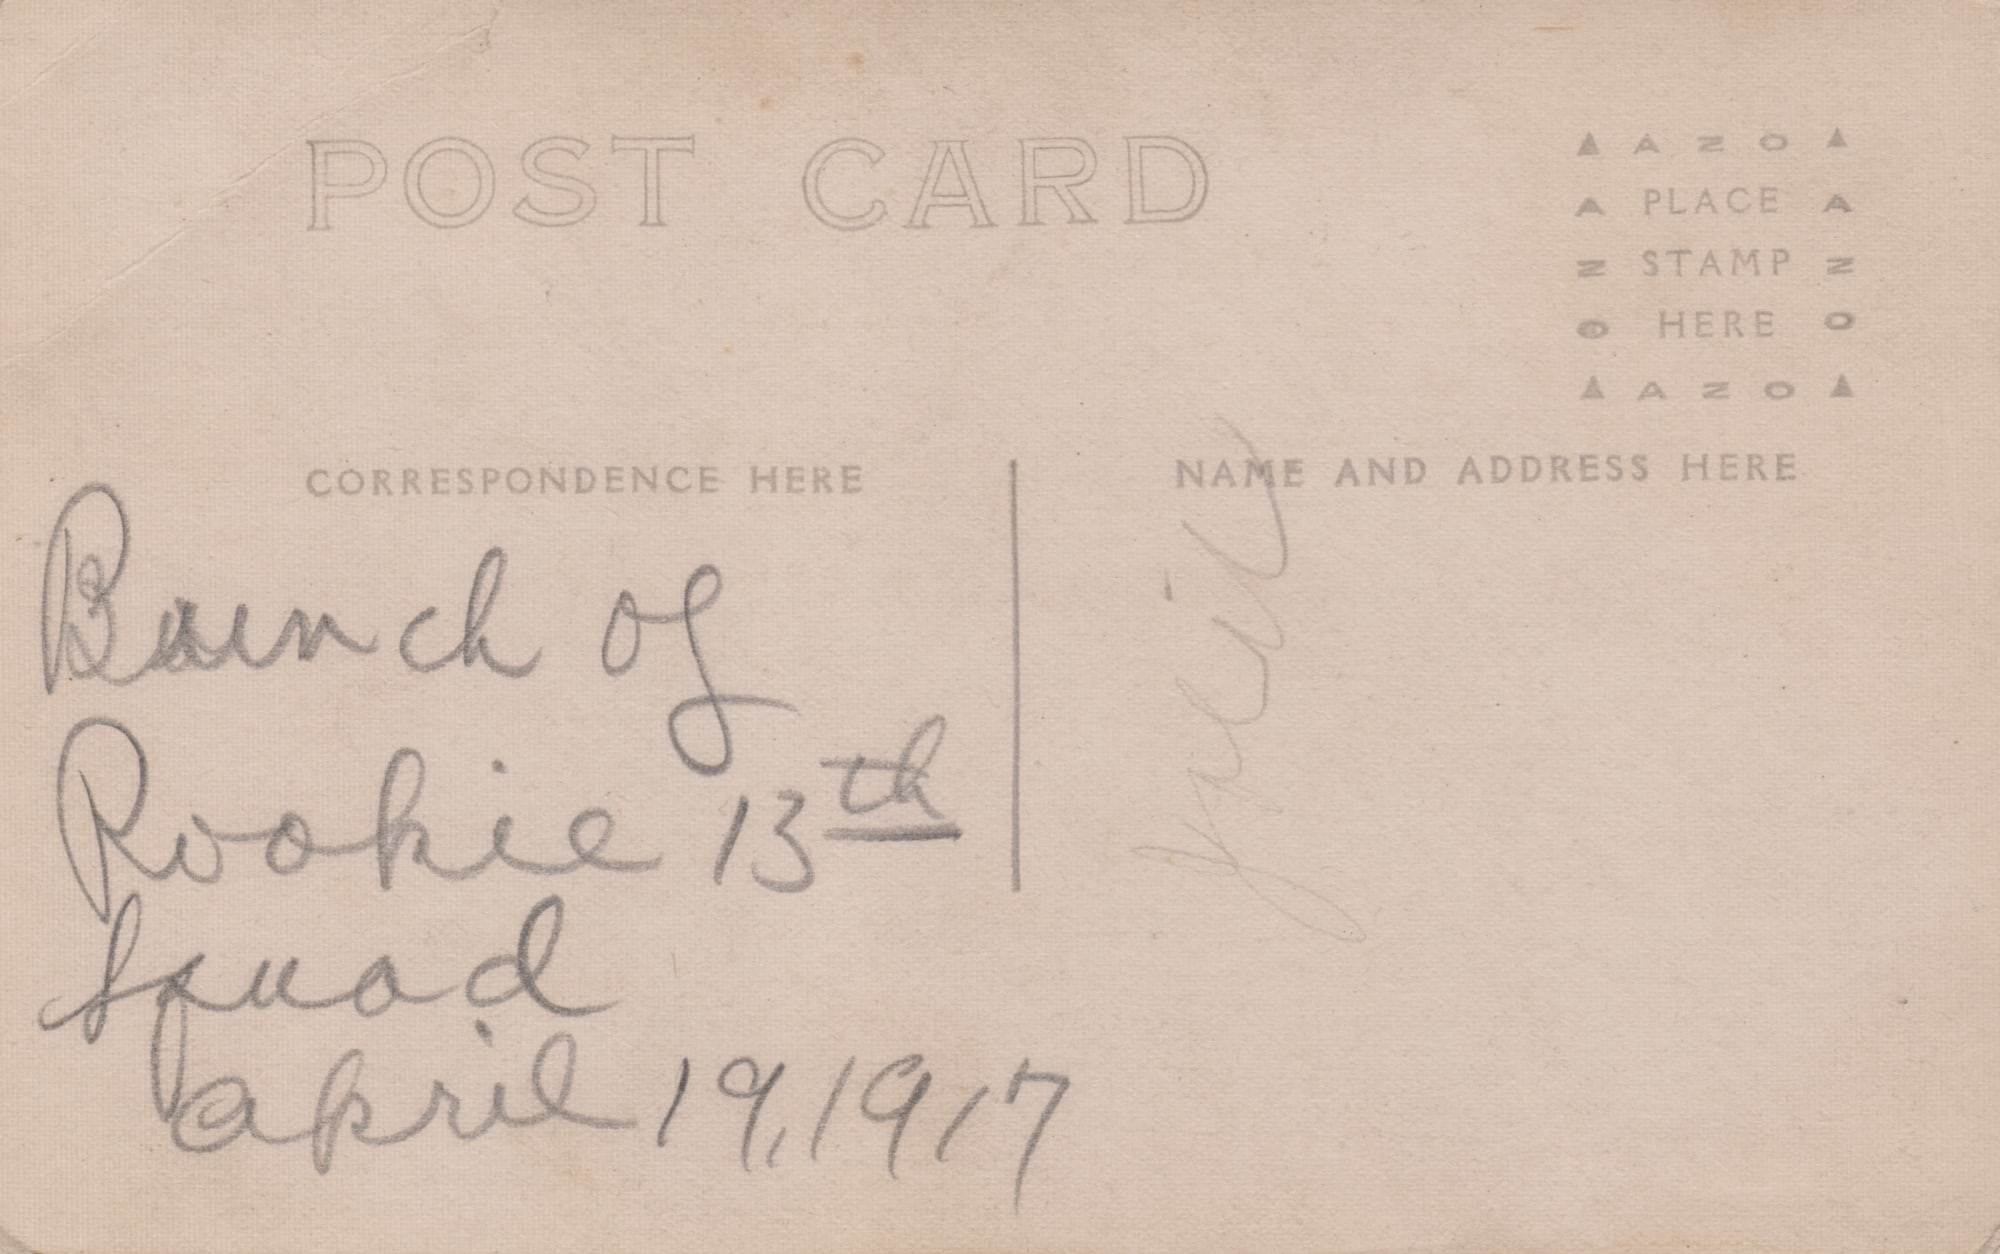 POST CARD
AZO
A PLACE A
Z STAMP Z
O HERE O
AZO
CORRESPONDENCE HERE
NAME AND ADDRESS HERE
Bunch of
Rookie 13th
Squad
april 19, 1917